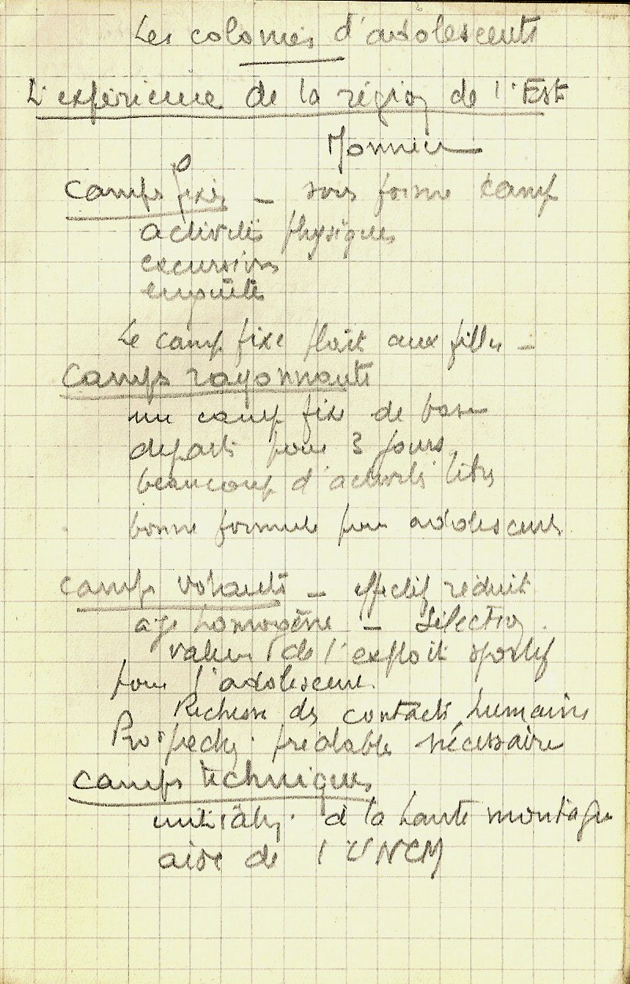 Les colonies d'adolescents
L'expérience de la région de l'Est
Monnier
Camps fixes – sous forme camp
activités physiques
excursions
enquêtes
Le camp fixe plait aux filles –
Camps rayonnants
un camp fixe de base
départs pour 3 jours
beaucoup d'activités libres
bonne formule pour adolescents
camps volants – effectif réduit
age homogène – Sélection.
valeur de l'exploit sportif
pour l'adolescent.
Richesse des contacts humains
Prospection préalable nécessaire
camps techniques
initiation à la haute montagne
aide de l'UNCM